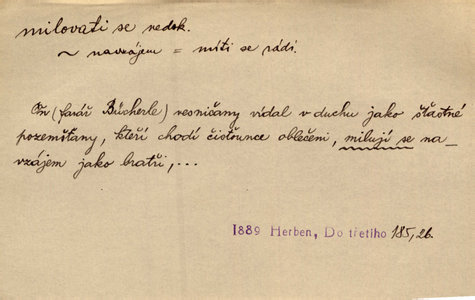 milovati se nedok.
~ navzájem = míti se rádi.
On (farář Bücherle) vesničany vídal v duchu jako šťastné
pozemšťany, kteří chodí čistounce oblečeni, milují se na-
vzájem jako bratři,...
1889 Herben, Do třetího 185,26.